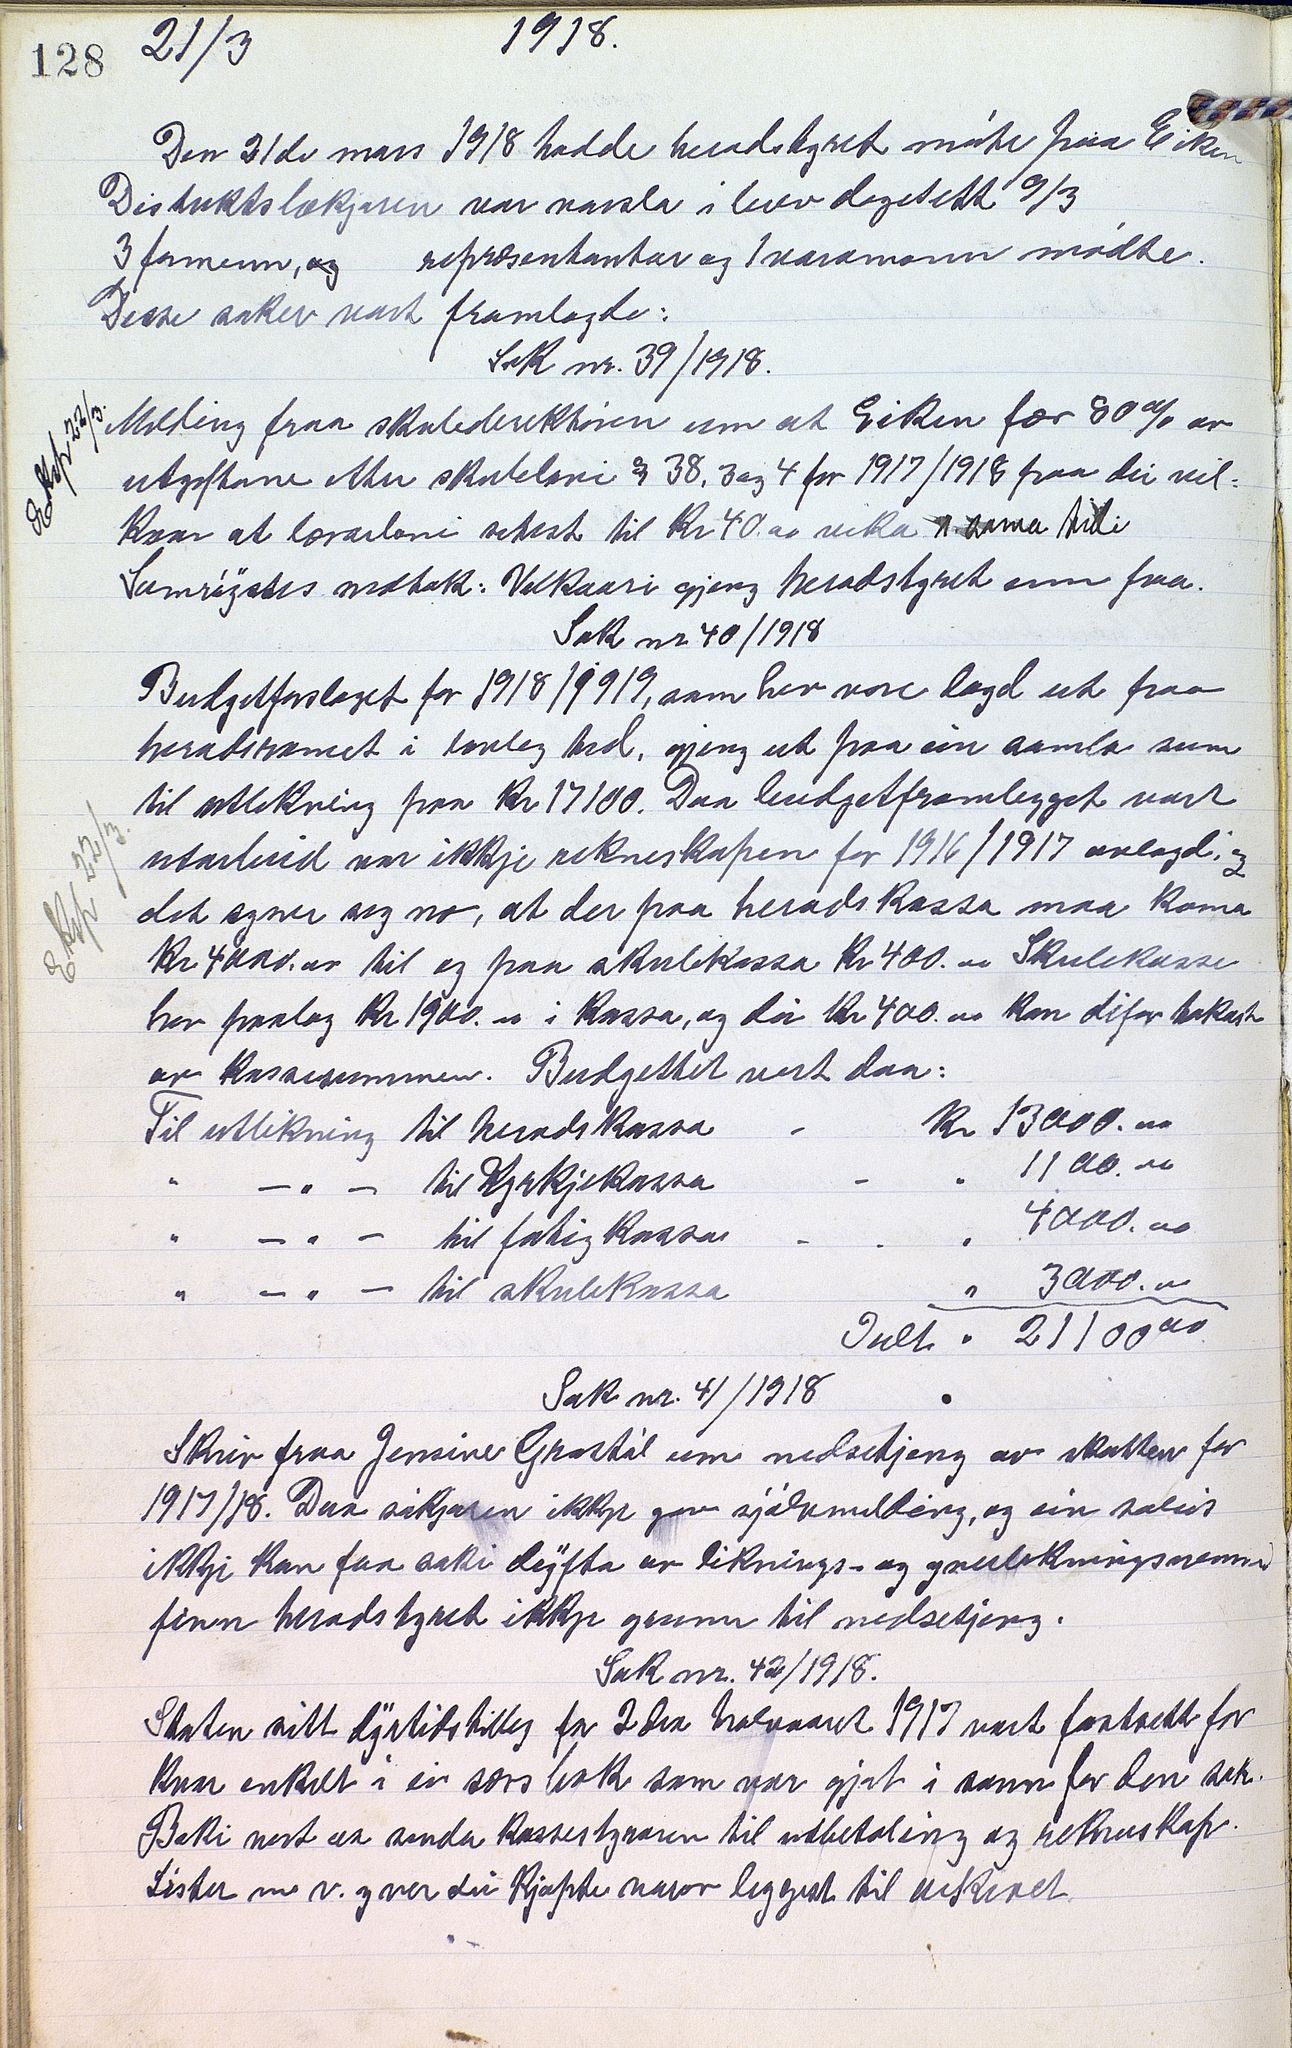 128 21/3 1918.
Den 21de mars 1918 hadde heradstyret møte paa Eiken
Distriktslækjaren var varsla i brev dagsett 9/3
3 formenn, og representantar og 1 varamann møtte.
Desse saker vart framlagde:
Sak nr. 39/1918.
Eksp 22/3.
Melding fraa skuledirektøren um at Eiken fær 80 % av
utgiftane etter skulelovi § 38, 3 og 4 for 1917/1918 paa dei vil-
kaar at lærarløni setest til Kr 40.00 vika sama tidi
Samrøystes vedtak: Vilkaari gjeng heradstyret inn paa.
Sak nr 40/1918
Budgetforslaget for 1918/1919, som hev vore lagd ut fraa
heradsromet i lovleg tid, gjeng ut paa ein samla sum
til utlikning paa Kr 17100. Daa budgetframlegget vart
utarbeid var ikkje rekneskapen for 1916/1917 avlagd, og
Eksp 22/3.
det syner seg no, at der paa heradskassa maa koma
Kr 4000.00 til og paa skulekassa Kr 400.00 Skulekassa
hev paalag Kr 1900.00 i kassa, og dei Kr 400.00 kan difor takast
av kassasummen. Budgettet vert daa:
Til utlikning til heradskassa - Kr 13000.00
" — " — til Kyrkjekassa - " 1100.00
" — " — til fatigkassa - - " 4000.00
" — " — til skulekassa " 3000.00
Ialt " 21100.00
Sak nr. 41/1918
Skriv fraa Jensine Grastøl um nedsetjeng av skatten for
1917/18. Daa søkjaren ikkje gav sjølvmelding, og ein soleis
ikkje kan faa saki drøfta av liknings- og yverlikningsnemnd
finn heradstyret ikkje grunn til nedsetjeng.
Sak nr. 42/1918.
Staten sitt dyrtidstillegg for 2dra halvaaret 1917 vart fastsett for
kvar enkelt i ei særs bok som var gjet i sann for den sak.
Boki vert aa senda kassestyraren til utbetaling og rekneskap.
Lister m. v. yver dei kjøpte varor leggest til arkivet